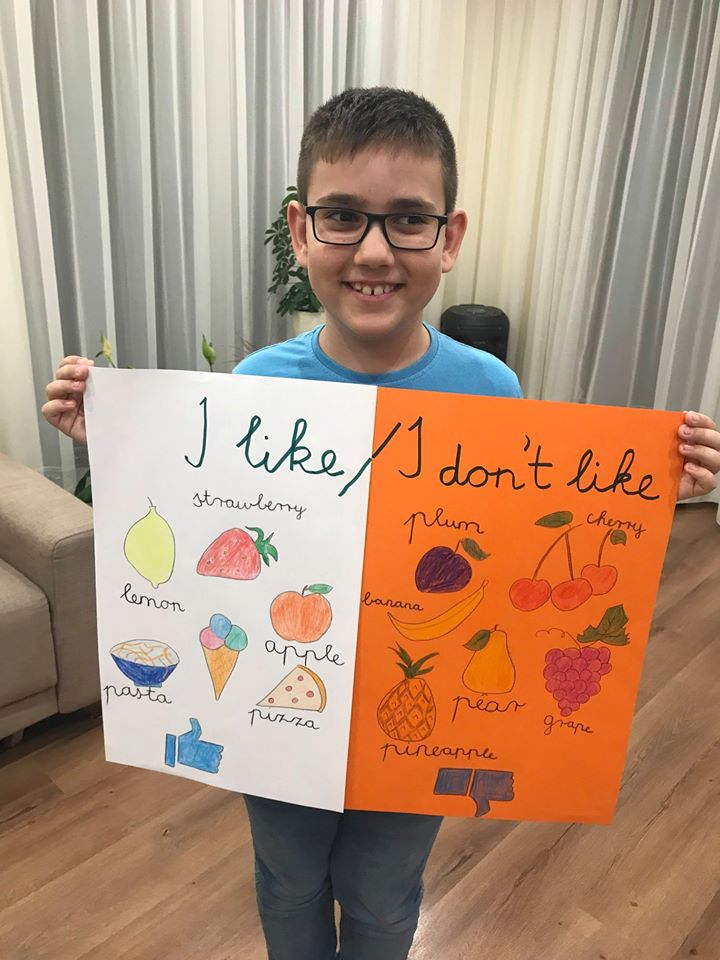 I like / I don't like
strawberry
lemon
apple
pasta
pizza
plum
cherry
banana
pear
grape
pineapple